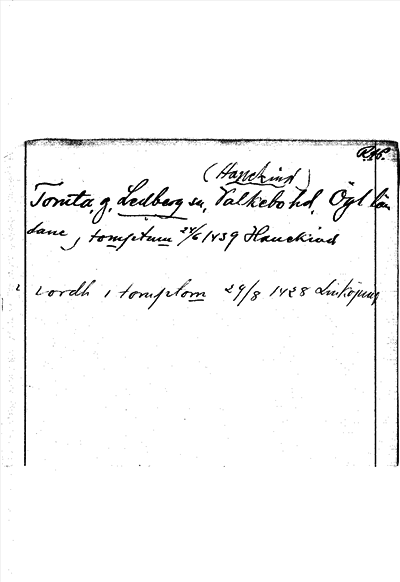 (Hanekind)
Tomta, g. Ledberg sn, Valkebo hd, Ögl län
dane, i tomptum 24/6 1439 Hanekind
i tomptom 29/8 1428 Linköping